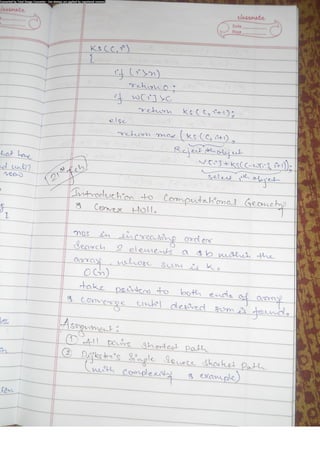 classmate
classmate
Date
Page
KS(C, i)
{
if (i>n)
return 0;
if W[i]>C
return KS(C, i+1);
else
return max (KS(C, i+1),
Reject ith object
V[i]+KS(C-W[i], i+1));
select ith object
21st Feb
Introduction to Computational Geometry
& Convex Hull.
nos in increasing order
search 2 elements a & b within the
array whose sum is K.
O(n)
take pointers to both ends of array
& converge until desired sum is found.
Assignment:
① All pairs shortest path
② Dijkstra's Single Source Shortest Path
(with complexity & example)